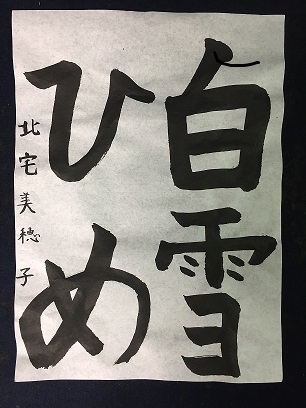 白雪
ひめ
北宅美穂子